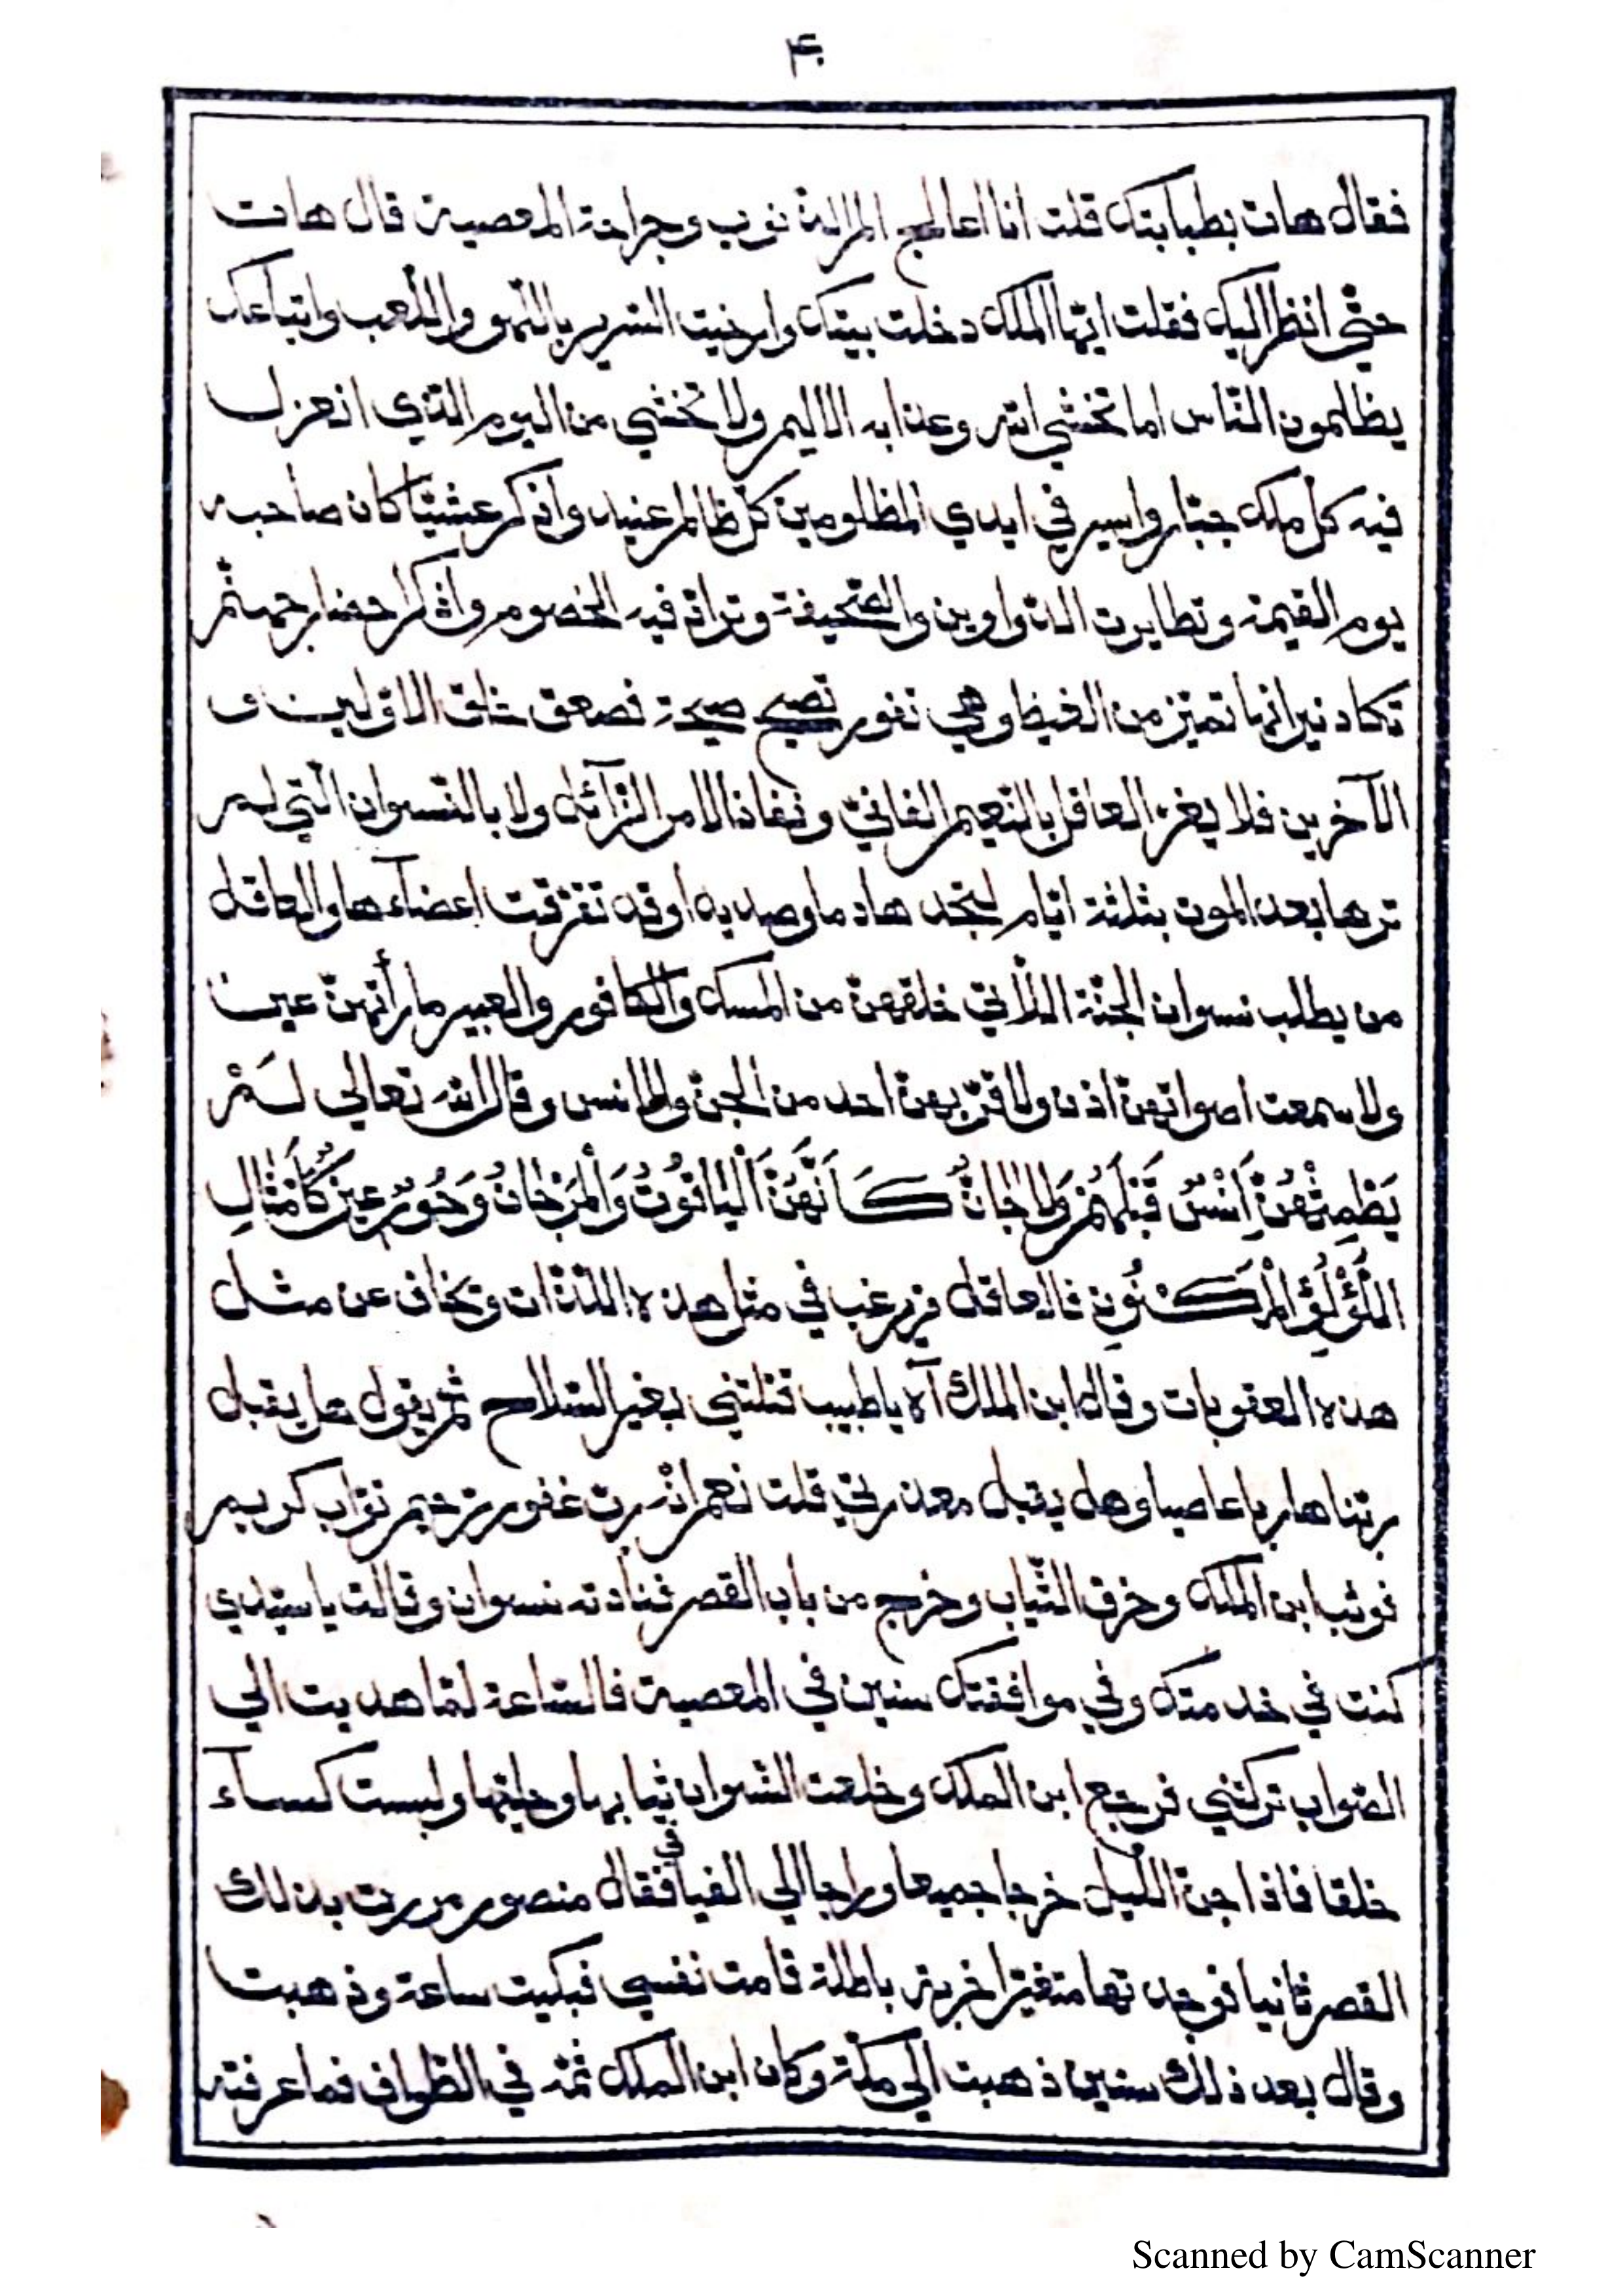 ۴۰
فقال هات بطبابتك قلت انا اعالج المزالة ذنوب وجراحة المعصية قال هات
حتّي انظر اليك فقلت ايّها الملك دخلت بيتك وارخيت السّرير باللّهو والّلعب واتباعك
يظلمون النّاس اما تخشي الله وعذابه الاليم ولا تخشي من اليوم الّذي انعزل
فيه كل ملك جبّار واسير في ايدي المظلومين كلّ ظالم عنيد واذكر عشيّا كان صاحبه
يوم القيمة وتطايرت الدّواوين والصّحيفة وتراد فيه الخصوم واذكر احضار جهنّم
تكاد نيرانها تميّز من الغيظ وهي تفور تصيح صيحة تصعق خلق الاوّلين و
الآخرين فلا يغرّ العاقل بالنّعيم الفاني ونفاذ الامر الزّآئل ولا بالنّسوان الّتي لم
ترها بعد الموت بثلثة ايّام لتجدها دما وصديدا وقد تفرّقت اعضآءها والعاقل
من يطلب نسوان الجنّة اللّاتي خلقهنّ من المسك والكافور والعبير ما رأتهنّ عين
ولا سمعت اصواتهنّ اذن ولا قرّبهنّ احد من الجنّ والانس وقال الله تعالي لَمْ
يَطْمِثْهُنَّ اِنْسٌ قَبْلَهُمْ وَلَا جَانٌّ كَاَنَّهُنَّ الْيَاقُوتُ وَالْمَرْجَانُ وَحُورٌ عِينٌ كَاَمْثَالِ
اللُّؤْلُؤِ الْمَكْنُونِ فالعاقل يرغب في مثل هذه اللّذّات وتخاف عن مثل
هذه العقوبات وقال ابن الملك آه يا طبيب قتلتني بغير السّلاح ثم يقول هل يقبل
ربّنا هاربا عاصيا وهل يقبل معذرتي قلت نعم انّه ربّ غفور رّحيم توّاب كريم
فوثب ابن الملك وخرق الثّياب وخرج من باب القصر فنادته نسوان وقالت يا سيّدي
كنت في خدمتك وفي موافقتك سنين في المعصية فالسّاعة لمّا هديت الي
الصّواب تركتني فرجع ابن الملك وخلعت النّسوان ثيابها وحليتها ولبست كسآء
خلقا فاذا جنّ اللّيل خرجا جميعا وراجا الي الفيافي فقال منصور مررت بذلك
القصر ثانيا فوجدتها متغيّرا خربة باطلة قامت نفسي فبكيت ساعة وذهبت
وقال بعد ذلك سنين ذهبت الي مكّة وكان ابن الملك ثمّه في الطّواف فما عرفته
Scanned by CamScanner